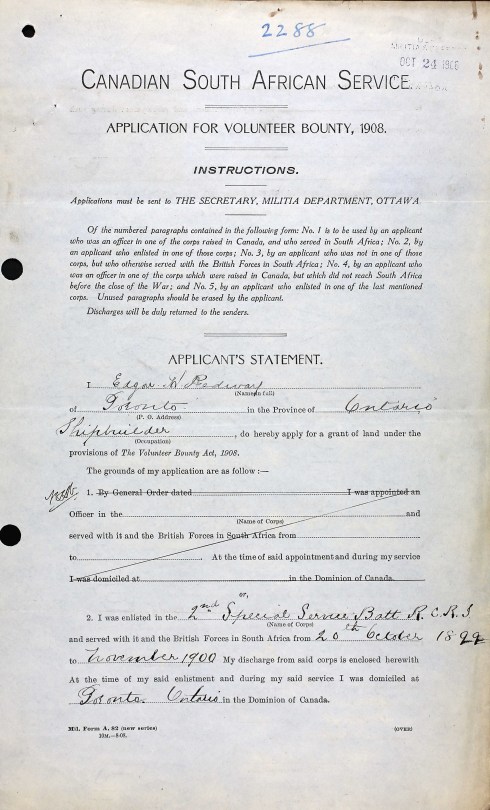 2288
OCT 24 1908
CANADIAN SOUTH AFRICAN SERVICE.
APPLICATION FOR VOLUNTEER BOUNTY, 1908.
INSTRUCTIONS.
Applications must be sent to THE SECRETARY, MILITIA DEPARTMENT, OTTAWA.
Of the numbered paragraphs contained in the following form: No. 1 is to be used by an applicant
who was an officer in one of the corps raised in Canada, and who served in South Africa; No. 2, by
an applicant who enlisted in one of those corps; No. 3, by an applicant who was not in one of those
corps, but who otherwise served with the British Forces in South Africa; No. 4, by an applicant who
was an officer in one of the corps which were raised in Canada, but which did not reach South Africa
before the close of the War; and No. 5, by an applicant who enlisted in one of the last mentioned
corps. Unused paragraphs should be erased by the applicant.
Discharges will be duly returned to the senders.
APPLICANT'S STATEMENT.
I Edgar H Redway
(Name in full)
of Toronto in the Province of Ontario
(P. O. Address)
Shipbuilder, do hereby apply for a grant of land under the
(Occupation)
provisions of The Volunteer Bounty Act, 1908.
The grounds of my application are as follow :—
1. By General Order dated I was appointed an
Officer in the and
(Name of Corps)
served with it and the British Forces in South Africa from
to. At the time of said appointment and during my service
I was domiciled at in the Dominion of Canada.
or,
2. I was enlisted in the 2nd Special Service Batt R.C.R.I
(Name of Corps)
and served with it and the British Forces in South Africa from 20th October 1899
to November 1900 My discharge from said corps is enclosed herewith
At the time of my said enlistment and during my said service I was domiciled at
Toronto Ontario in the Dominion of Canada.
Mil. Form A. 82 (new series)
10M.—8-08.
(OVER)